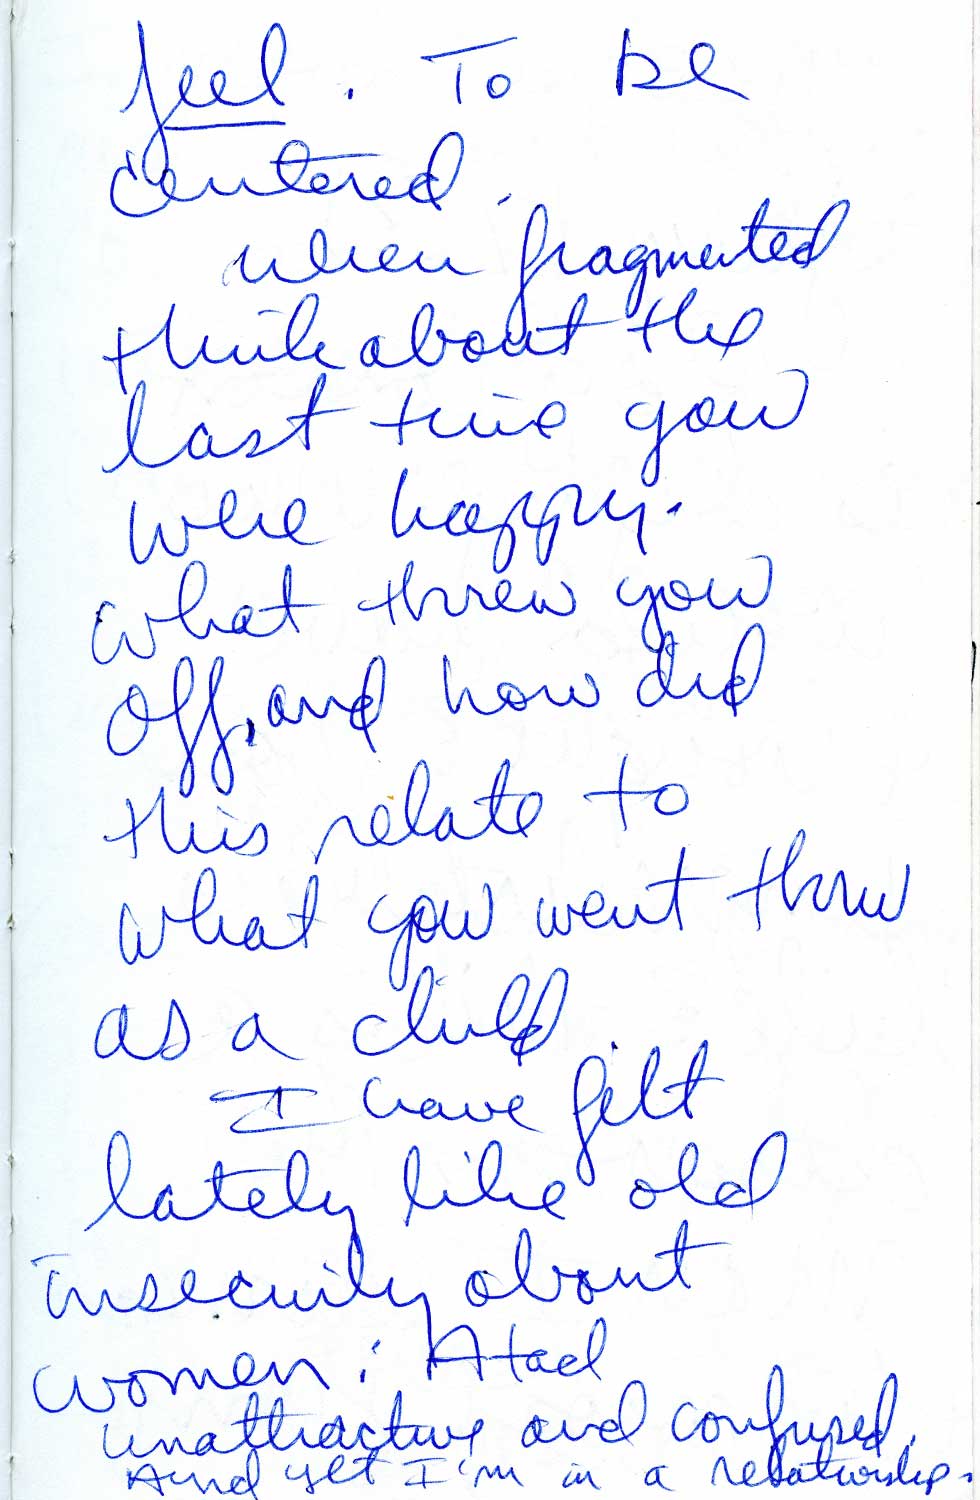 feel. To be
centered.
when fragmented
think about the
last time you
were happy.
what threw you
off, and how did
this relate to
what you went thru
as a child
I have felt
lately like old
insecurity about
women: A tad
unattractive and confused.
And yet I'm in a relationship.